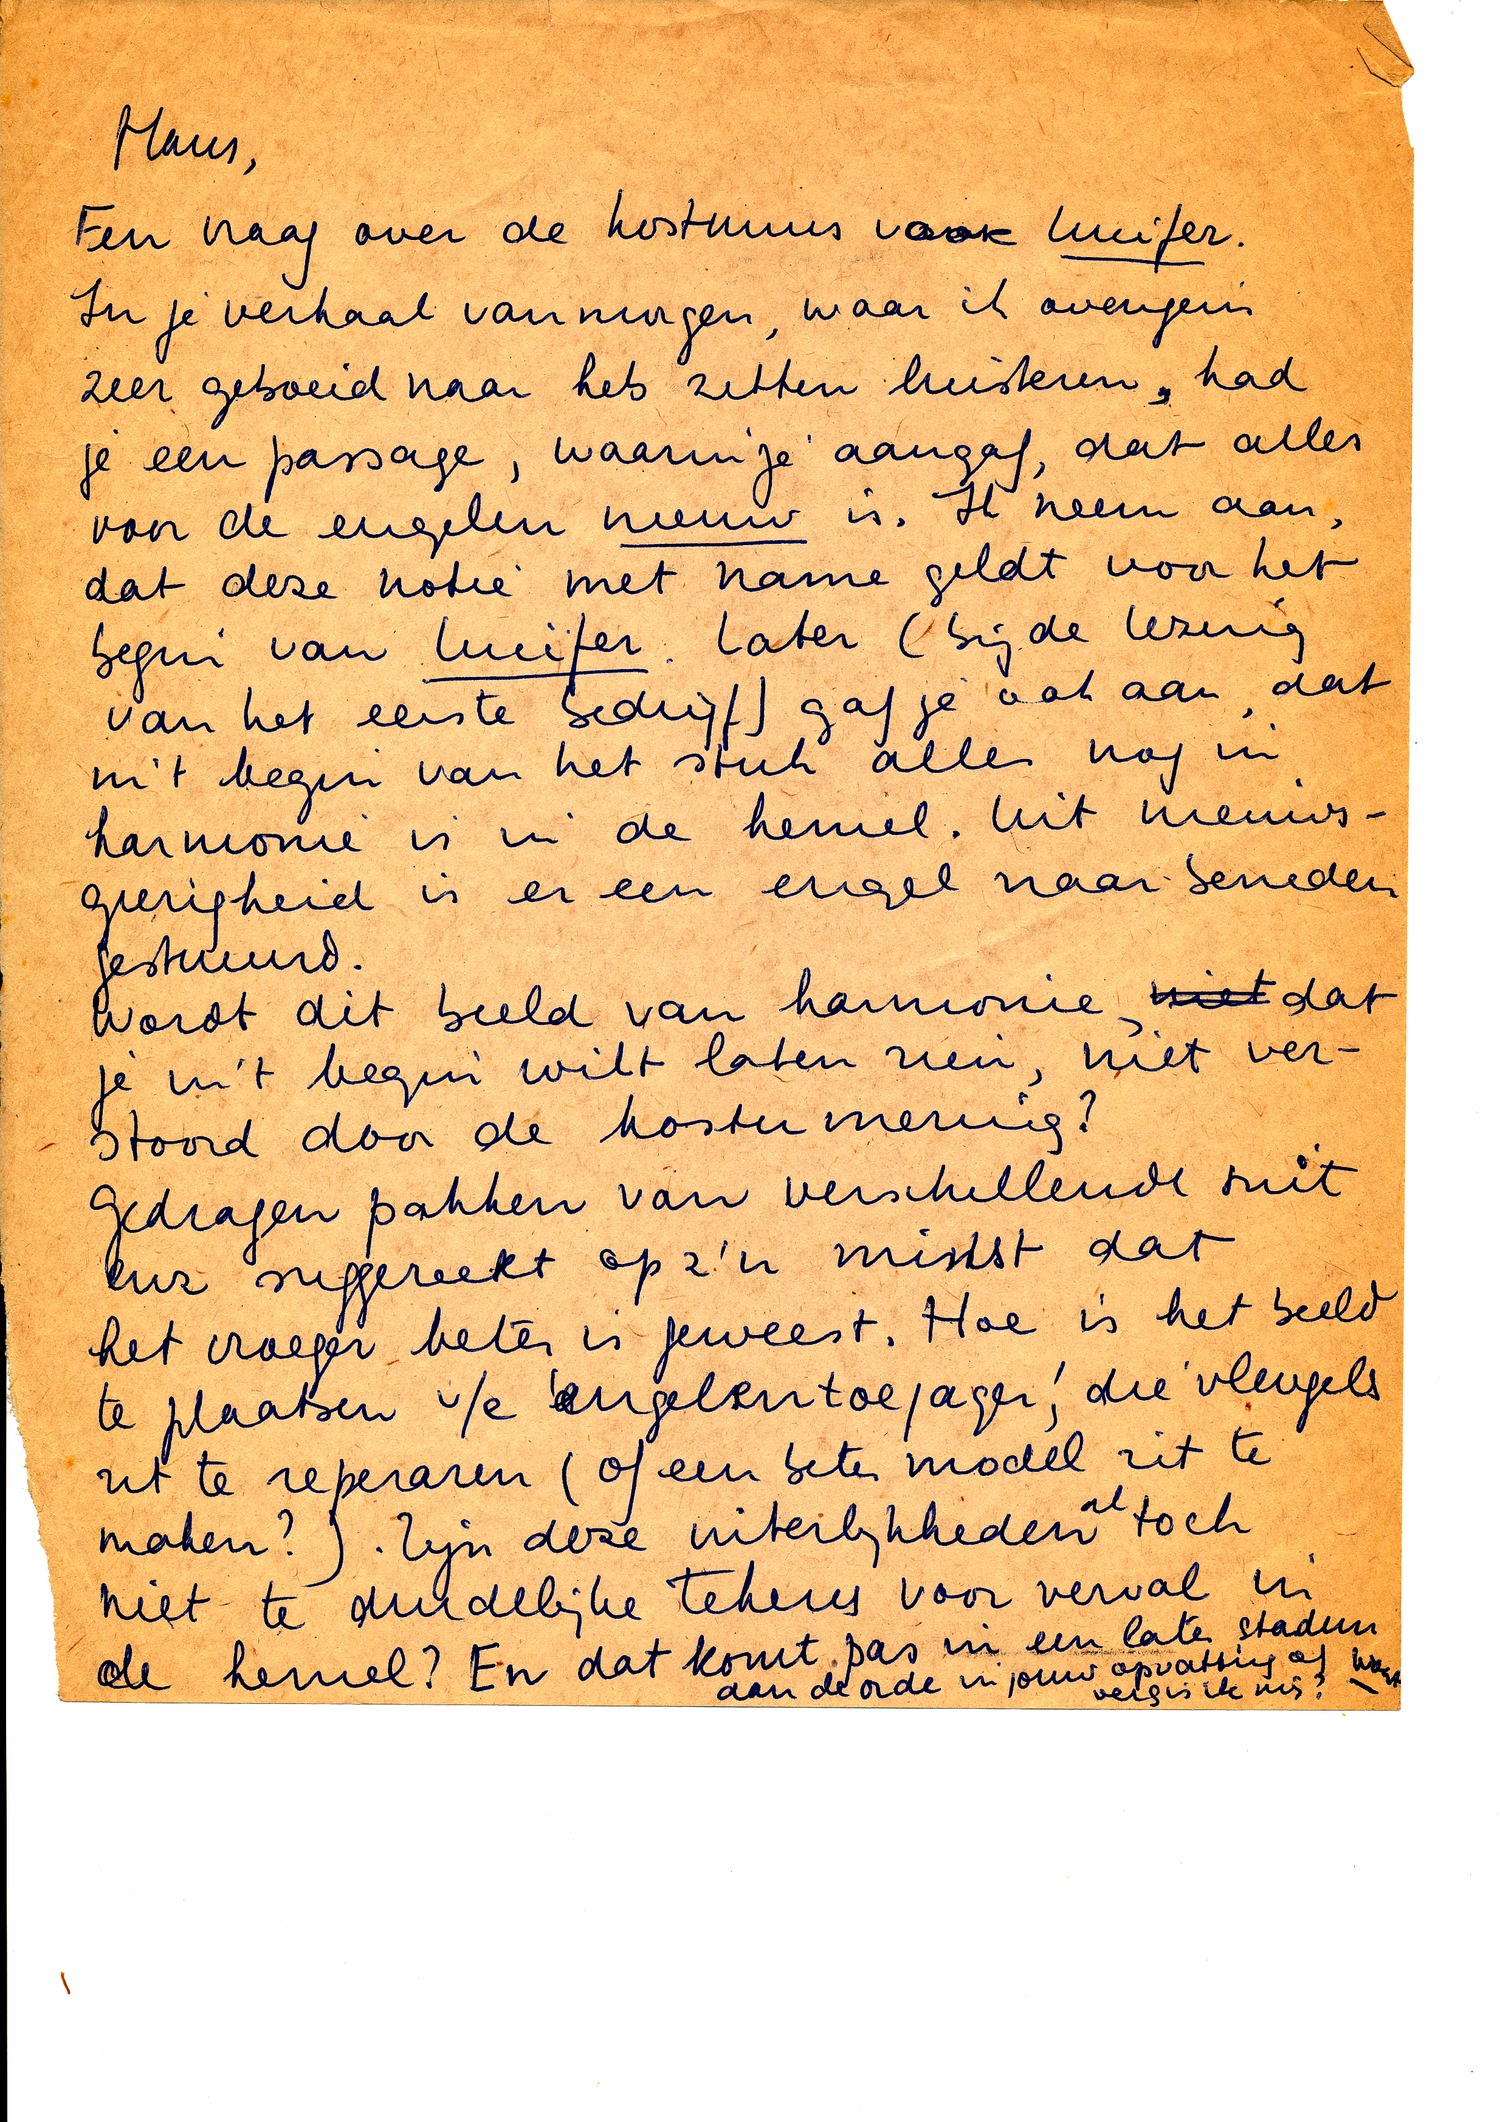 Hans,
Een vraag over de kostuums voor Lucifer.
In je verhaal vanmorgen, waar ik overigens
zeer geboeid naar heb zitten luisteren, had
je een passage, waarin je aangaf, dat alles
voor de engelen nieuw is. Ik neem aan,
dat deze notie met name geldt voor het
begin van Lucifer. Later (bij de lezing
van het eerste bedrijf) gaf je ook aan, dat
in't begin van het stuk alles nog in
harmonie is in de hemel. Uit nieuws-
gierigheid is er een engel naar beneden
gestuurd.
Wordt dit beeld van harmonie, niet dat
je in't begin wilt laten zien, niet ver-
stoord door de kostumering?
Gedragen pakken van verschillende snit
enz suggereert op z'n minst dat
het vroeger beter is geweest. Hoe is het beeld
te plaatsen v/e 'engelentoejager', die vleugels
zit te reperaren (of een beter model zit te
maken?). Zijn deze uiterlijkheden al toch
niet te duidelijke tekens voor verval in
de hemel? En dat komt pas in een later stadium
aan de orde in jouw opvatting of
vergis ik mij?